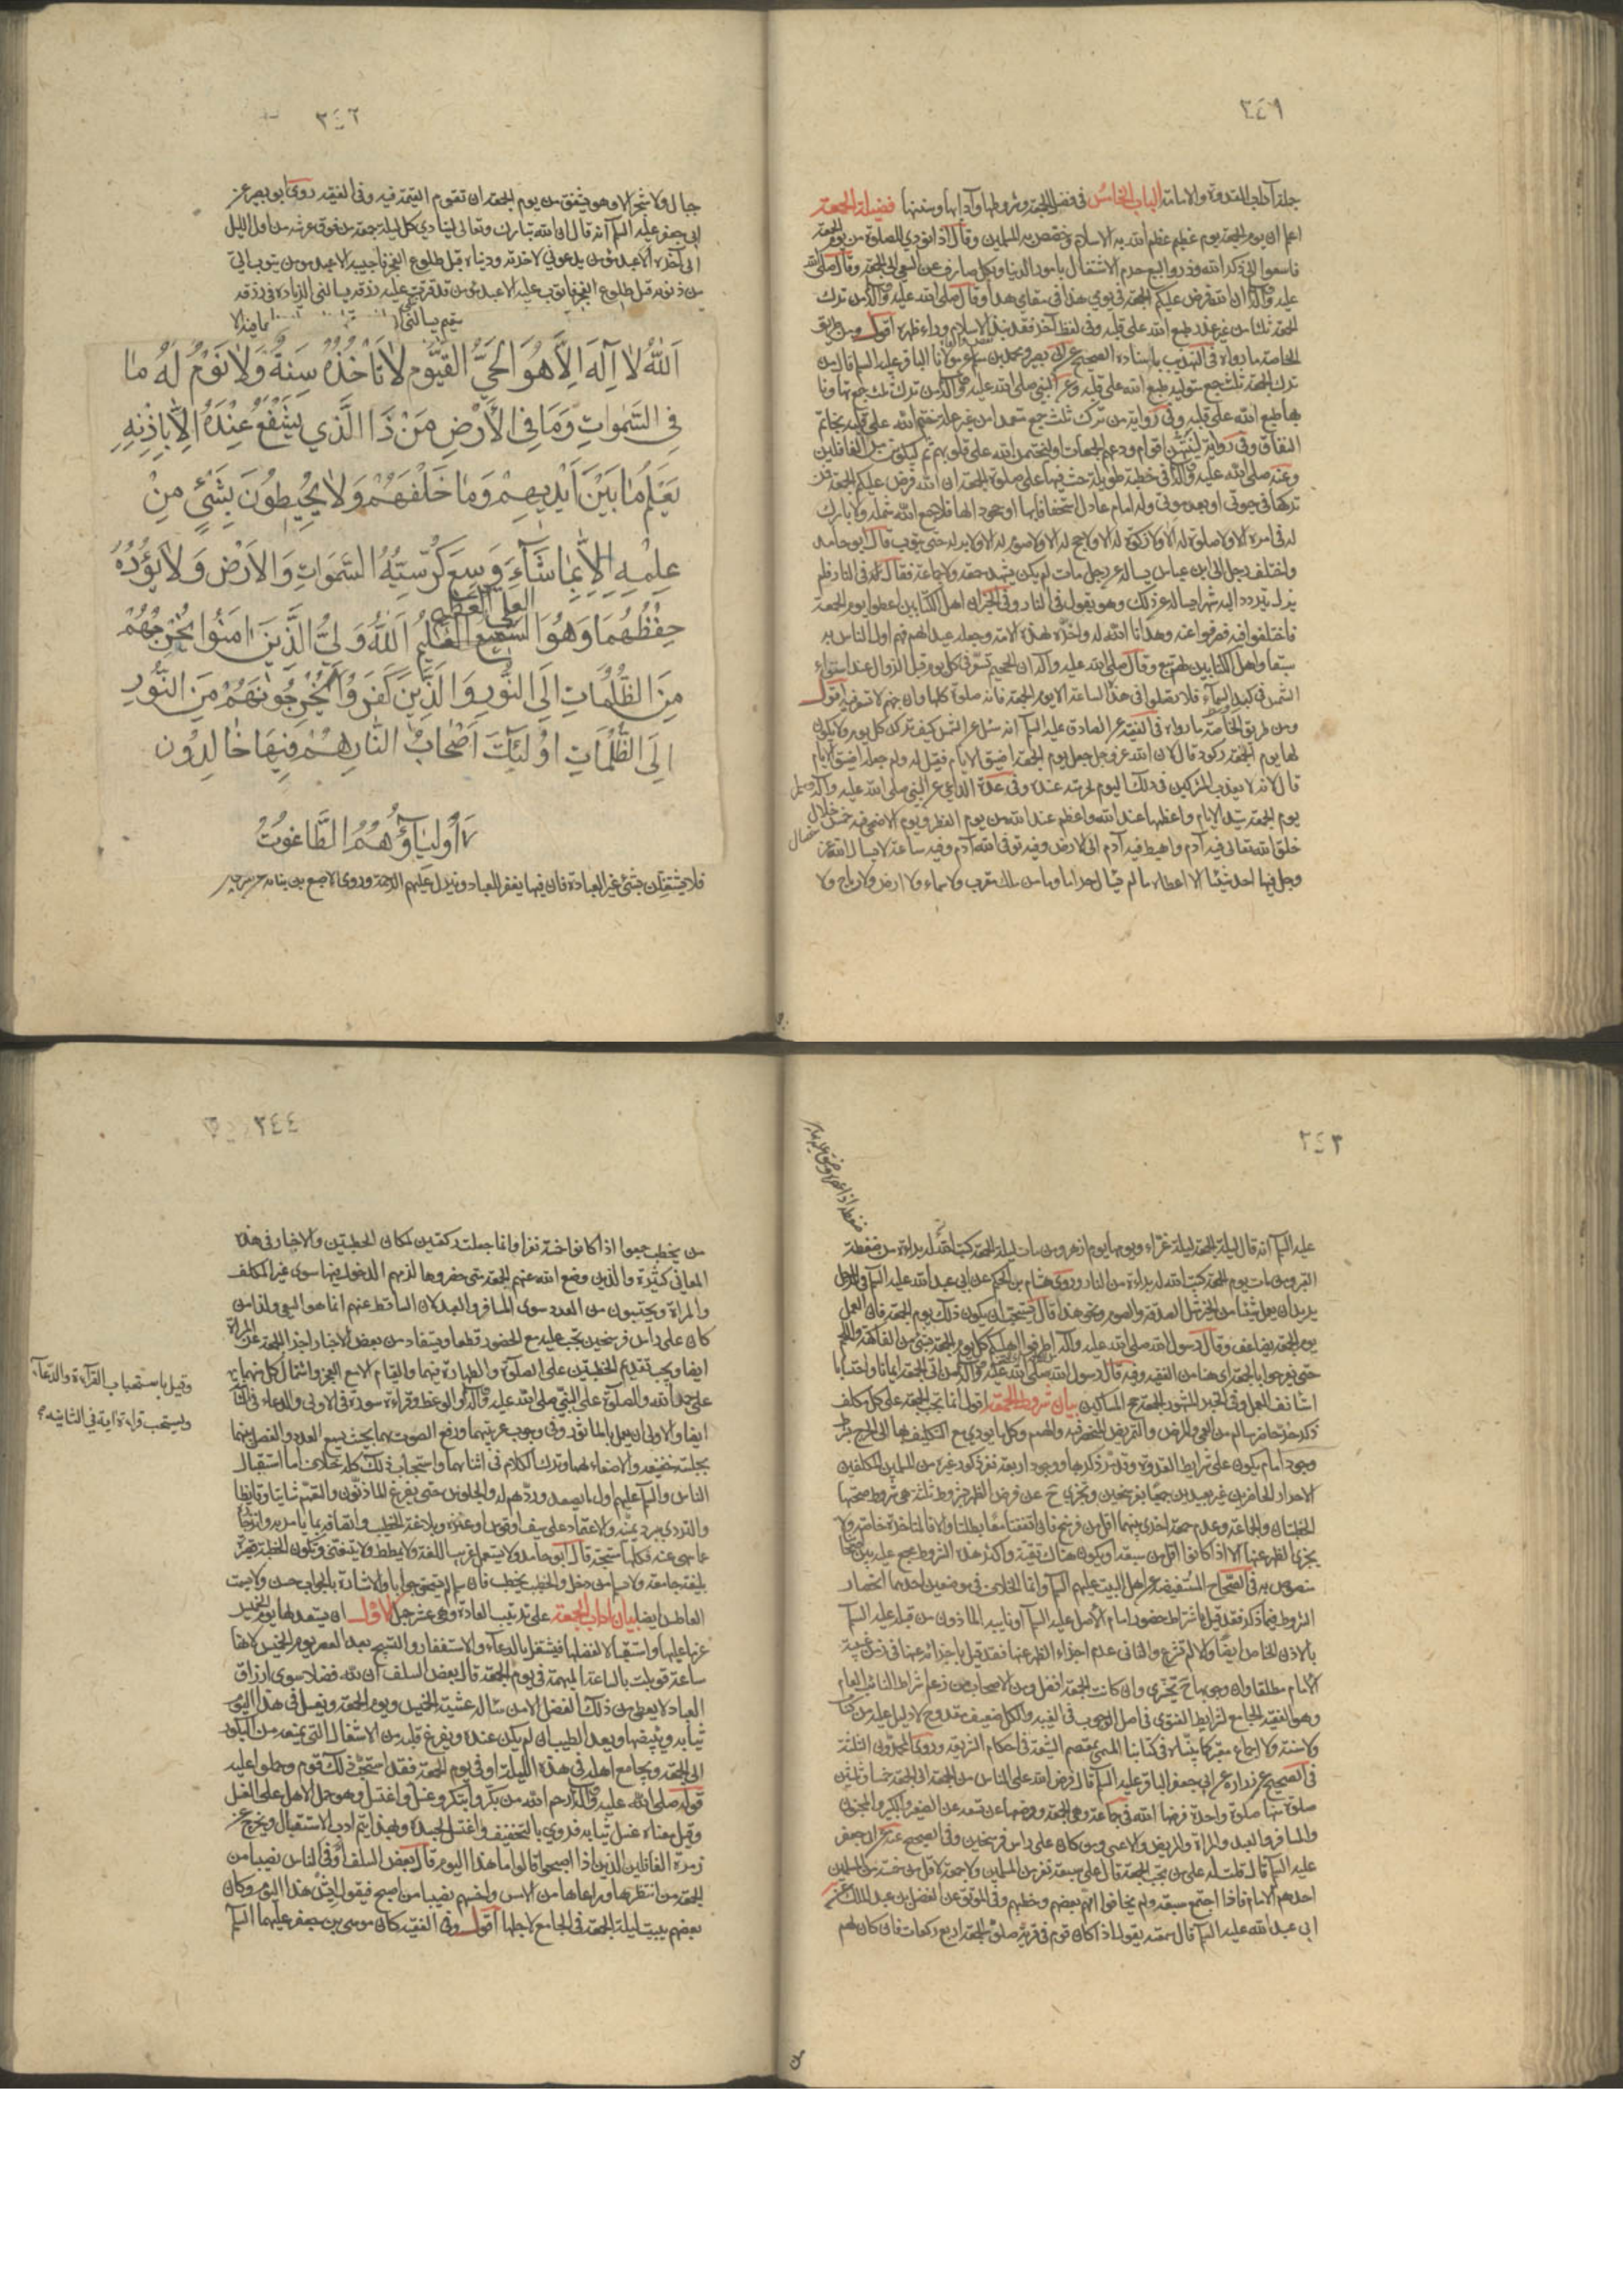 ٣٤١
جملة آداب القدوة والامامة الباب الخامس في فضل الجمعة وشروطها وآدابها وسننها فضيلة الجمعة
اعلم ان يوم الجمعة يوم عظيم عظم الله به الاسلام وخصص به المسلمين وقال اذا نودي للصلوة من يوم الجمعة
فاسعوا الى ذكر الله وذروا البيع حرم الاشتغال بامور الدنيا وبكل صارف عن السعي الى الجمعة وقال صلى الله
عليه وآله ان الله فرض عليكم الجمعة في يومي هذا في مقامي هذا وقال صلى الله عليه وآله من ترك
الجمعة ثلثا من غير عذر طبع الله على قلبه وفي لفظ آخر فقد نبذ الاسلام وراء ظهره اقول ومن طريق
الخاصة ما رواه في التهذيب باسناده الصحيح عن ابي بصير ومحمد بن مسلم عن مولانا الباقر عليه السلم قال من
ترك الجمعة ثلث جمع متوالية طبع الله على قلبه وعن النبي صلى الله عليه وآله من ترك ثلث جمع تهاونا
بها طبع الله على قلبه وفي رواية من ترك ثلث جمع متعمدا من غير علة ختم الله على قلبه بخاتم
النفاق وفي رواية لينتهين اقوام ودعهم الجمعات او ليختمن الله على قلوبهم ثم ليكونن من الغافلين
وعنه صلى الله عليه وآله في خطبة طويلة حث فيها على صلوة الجمعة ان الله فرض عليكم الجمعة فمن
تركها في حيوتي او بعد موتي وله امام عادل استخفافا بها او جحودا لها فلا جمع الله شمله ولا بارك
له في امره الا ولا صلوة له الا ولا زكوة له الا ولا حج له الا ولا صوم له الا ولا بر له حتى يتوب قال ابو حامد
واختلف رجل الى ابن عباس يسأله عن رجل مات لم يكن يشهد جمعة ولا جماعة فقال له في النار فلم
يزل يتردد اليه شهرا يسأله عن ذلك وهو يقول في النار وفي الخبر ان اهل الكتابين اعطوا يوم الجمعة
فاختلفوا فيه فصرفوا عنه وهدانا الله له واخره لهذه الامة وجعله عيدا لهم فهم اولى الناس به
سبقا واهل الكتابين لهم تبع وقال صلى الله عليه وآله ان الجحيم تسعر في كل يوم قبل الزوال عند استواء
الشمس في كبد السماء فلا تصلوا في هذا الساعة الا يوم الجمعة فانه صلوة كلها وان جهنم لا تسعر فيه اقول
ومن طريق الخاصة ما رواه في الفقيه عن الصادق عليه السلم انه سئل عن الشمس كيف تركد كل يوم ولا يكون
لها يوم الجمعة ركود قال لان الله عز وجل جعل يوم الجمعة اضيق الايام فقيل له ولم جعله اضيق الايام
قال لانه لا يعذب المشركين في ذلك اليوم لحرمته عنده وفي عدة الداعي عن النبي صلى الله عليه وآله
يوم الجمعة سيد الايام واعظمها عند الله واعظم عند الله من يوم الفطر ويوم الاضحى فيه خمس خلال
خصال
خلق الله تعالى فيه آدم واهبط فيه آدم الى الارض وفيه توفى الله آدم وفيه ساعة لا يسأل الله عز
وجل فيها احد شيئا الا اعطاه ما لم يسأل حراما وما من ملك مقرب ولا سماء ولا ارض ولا رياح ولا
٣٤٢
جبال ولا شجر الا وهو يشفق من يوم الجمعة ان تقوم القيمة فيه وفي الفقيه روى ابو بصير عن
ابي جعفر عليه السلم انه قال ان الله تبارك وتعالى لينادي كل ليلة جمعة من فوق عرشه من اول الليل
الى آخره الا عبد مؤمن يدعوني لاخرته ودنياه قبل طلوع الفجر فاجيبه الا عبد مؤمن يتوب الي
من ذنوبه قبل طلوع الفجر فاتوب عليه الا عبد مؤمن قد قترت عليه رزقه يسألني الزيادة في رزقه
الله لا اله الا هو الحي القيوم لا تأخذه سنة ولا نوم له ما
في السموات وما في الارض من ذا الذي يشفع عنده الا باذنه
يعلم ما بين ايديهم وما خلفهم ولا يحيطون بشيئ من
علمه الا بما شاء وسع كرسيه السموات والارض ولا يؤده
العلي العظيم
حفظهما وهو السميع العليم الله ولي الذين امنوا يخرجهم
من الظلمات الى النور والذين كفروا يخرجونهم من النور
الى الظلمات اولئك اصحاب النار هم فيها خالدون
اولياؤهم الطاغوت
فلا يشتغلن بشئ غير العبادة فان فيها يغفر للعباد وتنزل عليهم الرحمة وروى الاصبغ بن نباتة عن
٣٤٣
ضغطة
عليه السلم انه قال ليلة الجمعة ليلة غراء ويومها يوم ازهر ومن مات ليلة الجمعة كتب الله له براءة من ضغطة
القبر ومن مات يوم الجمعة كتب الله له براءة من النار وروى هشام بن الحكم عن ابي عبد الله عليه السلم في الرجل
يريد ان يعمل شيئا من الخير مثل الصدقة والصوم ونحو هذا قال يستحب ان يكون ذلك يوم الجمعة فان العمل
يوم الجمعة يضاعف وقال رسول الله صلى الله عليه وآله اطرفوا اهليكم كل يوم الجمعة بشئ من الفاكهة واللحم
حتى يفرحوا بالجمعة الى هنا من الفقيه وفيه قال رسول الله صلى الله عليه وآله من اتى الجمعة ايمانا واحتسابا
استأنف العمل وفي الخبر المشهور الجمعة حج المساكين بيان شروط الجمعة اقول انما يجب الجمعة على كل مكلف
ذكر حر حاضر سالم من العمى والمرض
وجود امام يكون على شرايط القدوة وقد مر ذكرها ووجود اربعة نفر ذكور غيره من المسلمين المكلفين
الاحرار الحاضرين غير بعيدين جميعا بفرسخين وتجزي ح عن فرض الظهر بشروط ثلثة هي شروط صحتها
الخطبتان والجماعة وعدم جمعة اخرى بينهما اقل من فرسخ فان اتفقتا معا بطلتا والا فالمتاخرة خاصة ولا
يجزي الظهر عنها الا اذا كانوا اقل من سبعة او يكون هناك تقية واكثر هذه الشروط مجمع عليه بين اصحابنا
منصوص به في الصحاح المستفيضة عن اهل البيت عليهم السلم وانما الخلاف في موضعين احدهما انحصار
الشروط فيما ذكر فقد قيل باشتراط حضور امام الأصل عليه السلم او نايبه الماذون من قبله عليه السلم
بالاذن الخاص ايضا والا لم تشرع والثاني عدم اجزاء الظهر عنها فقد قيل باجزائه عنها في زمن غيبة
الامام مطلقا وان وجوبها ح تخييري وان كانت الجمعة افضل ومن الاصحاب من زعم اشتراط النائب العام
وهو الفقيه الجامع لشرايط الفتوى في اصل الوجوب في الغيبة والكل ضعيف مقدوح لا دليل عليه من كتاب
ولا سنة ولا اجماع معتبر كما بيناه في كتابنا المسمى بمعتصم الشيعة في احكام الشريعة وروى المحمدون الثلثة
في الصحيح عن زرارة عن ابي جعفر الباقر عليه السلم قال فرض الله على الناس من الجمعة الى الجمعة خمسا وثلثين
صلوة منها صلوة واحدة فرضها الله في جماعة وهي الجمعة ووضعها عن تسعة عن الصغير والكبير والمجنون
والمسافر والعبد والمراة والمريض والاعمى ومن كان على راس فرسخين وفي الصحيح عنه عن ابي جعفر
عليه السلم قال قلت له على من تجب الجمعة قال على سبعة نفر من المسلمين ولا جمعة لاقل من خمسة من المسلمين
احدهم الامام فاذا اجتمع سبعة ولم يخافوا امهم بعضهم وخطبهم وفي الموثق عن الفضل بن عبد الملك عن
ابي عبد الله عليه السلم قال سمعته يقول اذا كان قوم في قرية صلوا الجمعة اربع ركعات فان كان لهم
٣٤٤
من يخطب جمعوا اذا كانوا خمسة نفر وانما جعلت ركعتين لمكان الخطبتين والاخبار في هذه
المعاني كثيرة والذين وضع الله عنهم الجمعة متى حضروها لزمهم الدخول فيها سوى غير المكلف
والمراة ويحتسبون من العدد سوى المسافر والعبد لان الساقط عنهم انما هو السعي ولذا من
كان على راس فرسخين تجب عليه مع الحضور قطعا ويستفاد من بعض الاخبار اجزاء الجمعة عن المراة
ايضا ويجب تقديم الخطبتين على الصلوة والطهارة فيهما والقيام الا مع العجز واشتمال كل منهما
على حمد الله والصلوة على النبي صلى الله عليه وآله والوعظ وقراءة سورة في الاولى والدعاء في الثانية
وقيل باستحباب القراءة والدعاء
ويستحب قراءة اية في الثانية
ايضا والاولى ان يعمل بالماثور وفي وجوب عربيتهما ورفع الصوت بهما بحيث يسمع العدد والفصل بينهما
بجلسة خفيفة والاصغاء لهما وترك الكلام في اثنائهما واستحباب ذلك كله خلاف اما استقبال
الناس والسلم عليهم اول ما يصعد وردهم له والجلوس حتى يفرغ المؤذنون والتعمم شاتيا وقايظا
والتردي ببرد يمنية والاعتماد على سيف او قوس او عنزة وبلاغة الخطيب واتصافه بما يأمر به وانزجاره
عما نهى عنه فكلها مستحبة قال ابو حامد ولا يستعمل غريب اللغة ولا يمطط ولا يتغنى وتكون الخطبة قصيرة
بليغة جامعة ولا يسلم من دخل والخطيب يخطب فان سلم لم يستحق جوابا والاشارة بالجواب حسن ولا يسمت
العاطس ايضا بيان اداب الجمعة على ترتيب العادة وهي عشر جمل الاول ان يستعد لها يوم الخميس
عزما عليها واستقبالا لفضلها فيشتغل بالدعاء والاستغفار والتسبيح بعد العصر يوم الخميس لانها
ساعة قوبلت بالساعة المبهمة في يوم الجمعة قال بعض السلف ان لله فضلا سوى ارزاق
العباد لا يعطي من ذلك الفضل الا من سأله عشية الخميس ويوم الجمعة ويغسل في هذا اليوم
ثيابه ويبيضها ويعد الطيب ان لم يكن عنده ويفرغ قلبه من الاشغال التي تمنعه من البكور
الى الجمعة ويجامع اهله في هذه الليلة او في يوم الجمعة فقد استحب ذلك قوم وحملوا عليه
قوله صلى الله عليه وآله رحم الله من بكر وابتكر وغسل واغتسل وهو حمل الاهل على الغسل
وقيل معناه غسل ثيابه فروي بالتخفيف واغتسل لجسده وبهذا يتم ادب الاستقبال ويخرج عن
زمرة الغافلين الذين اذا اصبحوا قالوا ما هذا اليوم قال بعض السلف اوفى الناس نصيبا من
الجمعة من انتظرها وراعاها من الامس واخسهم نصيبا من اصبح فيقول ايش هذا اليوم وكان
بعضهم يبيت ليلة الجمعة في الجامع لاجلها اقول وفي الفقيه كان موسى بن جعفر عليهما السلم